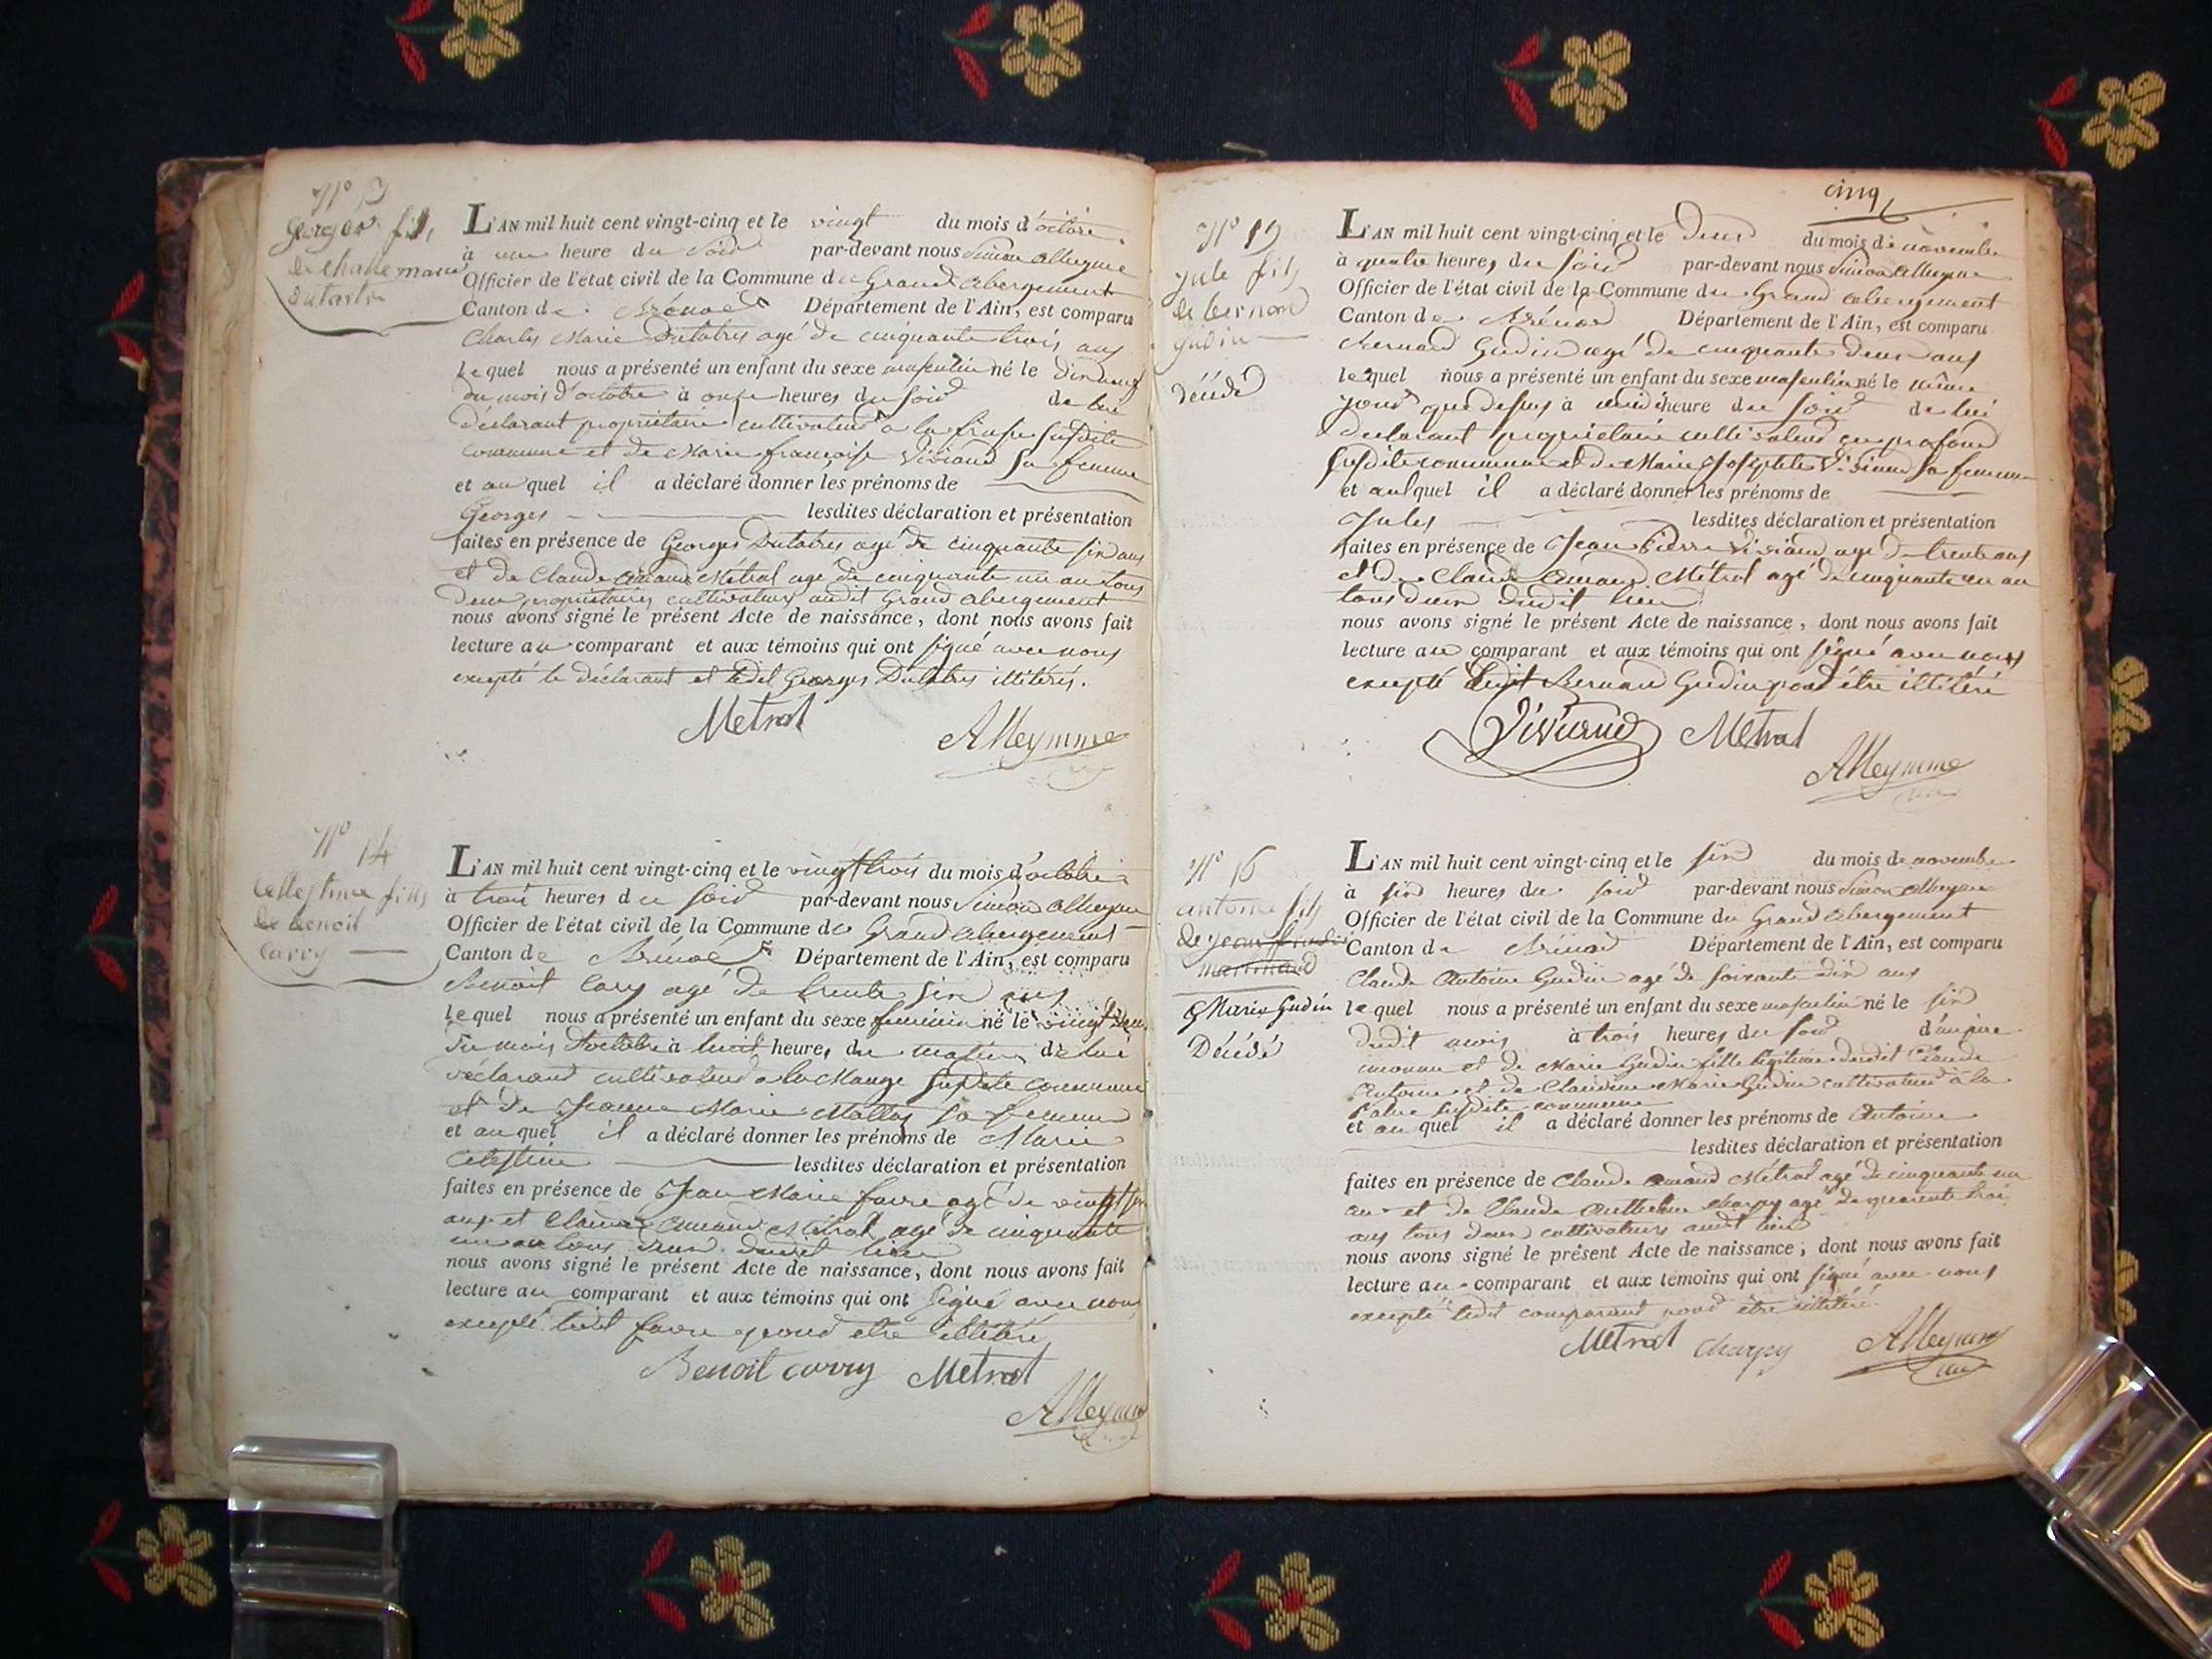 N° 13
georges fils
de charle marie
dutartre
L'AN mil huit cent vingt-cinq et le vingt du mois d'octobre
à une heure du soir par-devant nous Simon Alleymme
Officier de l'état civil de la Commune du Grand abergement
Canton de Brénod Département de l'Ain, est comparu
Charles Marie Dutartres agé de cinquante trois ans
lequel nous a présenté un enfant du sexe masculin né le dixneuf
du mois d'octobre à onze heures du soir de lui
déclarant propriétaire cultivateur à la susdite
commune et de Marie françoise Viviand sa femme
et auquel il a déclaré donner les prénoms de
Georges lesdites déclaration et présentation
faites en présence de Georges Dutatres agé de cinquante six ans
et de Claude Amand Métral agé de cinquante un an tous
deux propriétaires cultivateurs audit Grand abergement
nous avons signé le présent Acte de naissance, dont nous avons fait
lecture au comparant et aux témoins qui ont signé avec nous
excepté le déclarant et ledit Georges Dutatres illitérés.
Metral
Alleymme
N° 14
Cellestine fille
de benoit
Carry
L'AN mil huit cent vingt-cinq et le vingt trois du mois d'octobre
à trois heures du soir par-devant nous Simon Alleymme
Officier de l'état civil de la Commune de Grand abergement
Canton de Brénod Département de l'Ain, est comparu
Benoit Cary agé de trente six ans
lequel nous a présenté un enfant du sexe feminin né le vingt deux
du mois d'octobre à huit heures du matin de lui
déclarant cultivateur à la Mange susdite commune
et de Jeanne Marie Mallay sa femme
et auquel il a déclaré donner les prénoms de Marie
Celestine lesdites déclaration et présentation
faites en présence de Jean Marie favre agé de vingt
ans et Claude Amand Métral agé de cinquante
un an tous deux dudit lieu
nous avons signé le présent Acte de naissance, dont nous avons fait
lecture au comparant et aux témoins qui ont signé avec nous
excepté ledit favre pour etre illitéré
Benoit carry Metral
Alleymme
cinq
N° 15
jule fils
de bernard
gudin
décédé
L'AN mil huit cent vingt-cinq et le deux du mois de novembre
à quatre heures du soir par-devant nous Simon Alleymme
Officier de l'état civil de la Commune du Grand abergement
Canton de Brénod Département de l'Ain, est comparu
Bernard Gudin agé de cinquante deux ans
lequel nous a présenté un enfant du sexe masculin né le même
jour que dessus à une heure du soir de lui
declarant propriétaire cultivateur
susdite commune et de Marie Josephte Viviand sa femme
et auquel il a déclaré donner les prénoms de
Jules lesdites déclaration et présentation
faites en présence de Jean Pierre Viviand agé de trente ans
et de Claude Amand Métral agé de cinquante un an
tous deux dudit lieu
nous avons signé le présent Acte de naissance, dont nous avons fait
lecture au comparant et aux témoins qui ont signé avec nous
excepté ledit Bernard Gudin pour être illitéré
Viviand Metral
Alleymme
N° 16
antoine fils
de jean
martinand
Marie Gudin
Décédé
L'AN mil huit cent vingt-cinq et le six du mois de novembre
à six heures du soir par-devant nous Simon Alleymme
Officier de l'état civil de la Commune du Grand abergement
Canton de Brénod Département de l'Ain, est comparu
Claude Antoine Gudin agé de soixante dix ans
lequel nous a présenté un enfant du sexe masculin né le six
dudit mois à trois heures du soir d'un père
inconnu et de Marie Gudin fille légitime dudit Claude
Antoine et de Claudine Marie Gudin cultivateur à la
susdite commune
et auquel il a déclaré donner les prénoms de Antoine
lesdites déclaration et présentation
faites en présence de Claude Amand Métral agé de cinquante un
an et de Claude Anthelme Charpy agé de quarente trois
ans tous deux cultivateurs audit lieu
nous avons signé le présent Acte de naissance, dont nous avons fait
lecture au comparant et aux témoins qui ont signé avec nous
excepté ledit comparant pour être illitéré.
Metral Charpy Alleymme